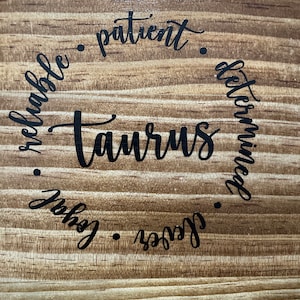 patient • determined • clever • loyal • reliable •
taurus